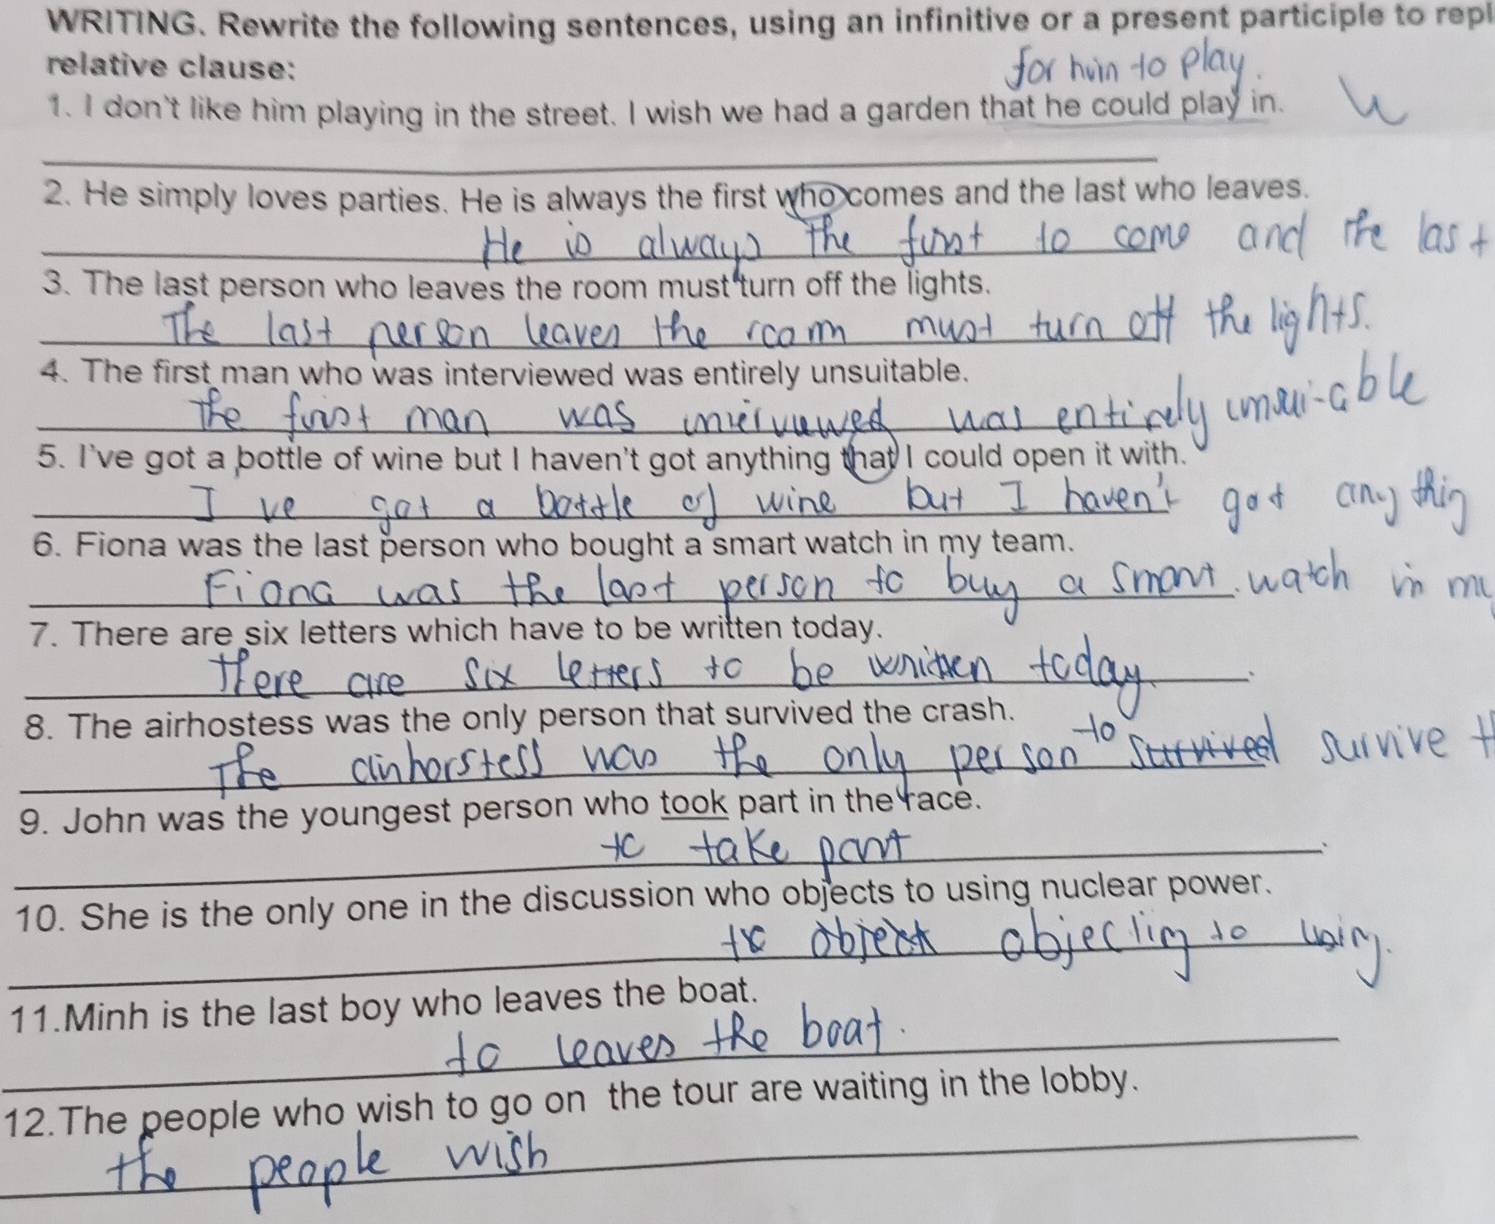 WRITING. Rewrite the following sentences, using an infinitive or a present participle to repl
relative clause:
for him to play.
1. I don't like him playing in the street. I wish we had a garden that he could play in.
2. He simply loves parties. He is always the first who comes and the last who leaves.
He is always the first to come and the last
3. The last person who leaves the room must turn off the lights.
The last person leaves the room must turn off the lights.
4. The first man who was interviewed was entirely unsuitable.
The first man was interviewed was entirely
5. I've got a bottle of wine but I haven't got anything that I could open it with.
I ve got a bottle of wine but I haven't got any thing
6. Fiona was the last person who bought a smart watch in my team.
Fiona was the last person to buy a smart watch in
7. There are six letters which have to be written today.
There are six letters to be written today.
8. The airhostess was the only person that survived the crash.
The airhorstess was the only person to survived survive
9. John was the youngest person who took part in the race.
to take part
10. She is the only one in the discussion who objects to using nuclear power.
to object objecting to using.
11.Minh is the last boy who leaves the boat.
to leaves the boat.
12.The people who wish to go on the tour are waiting in the lobby.
the people wish